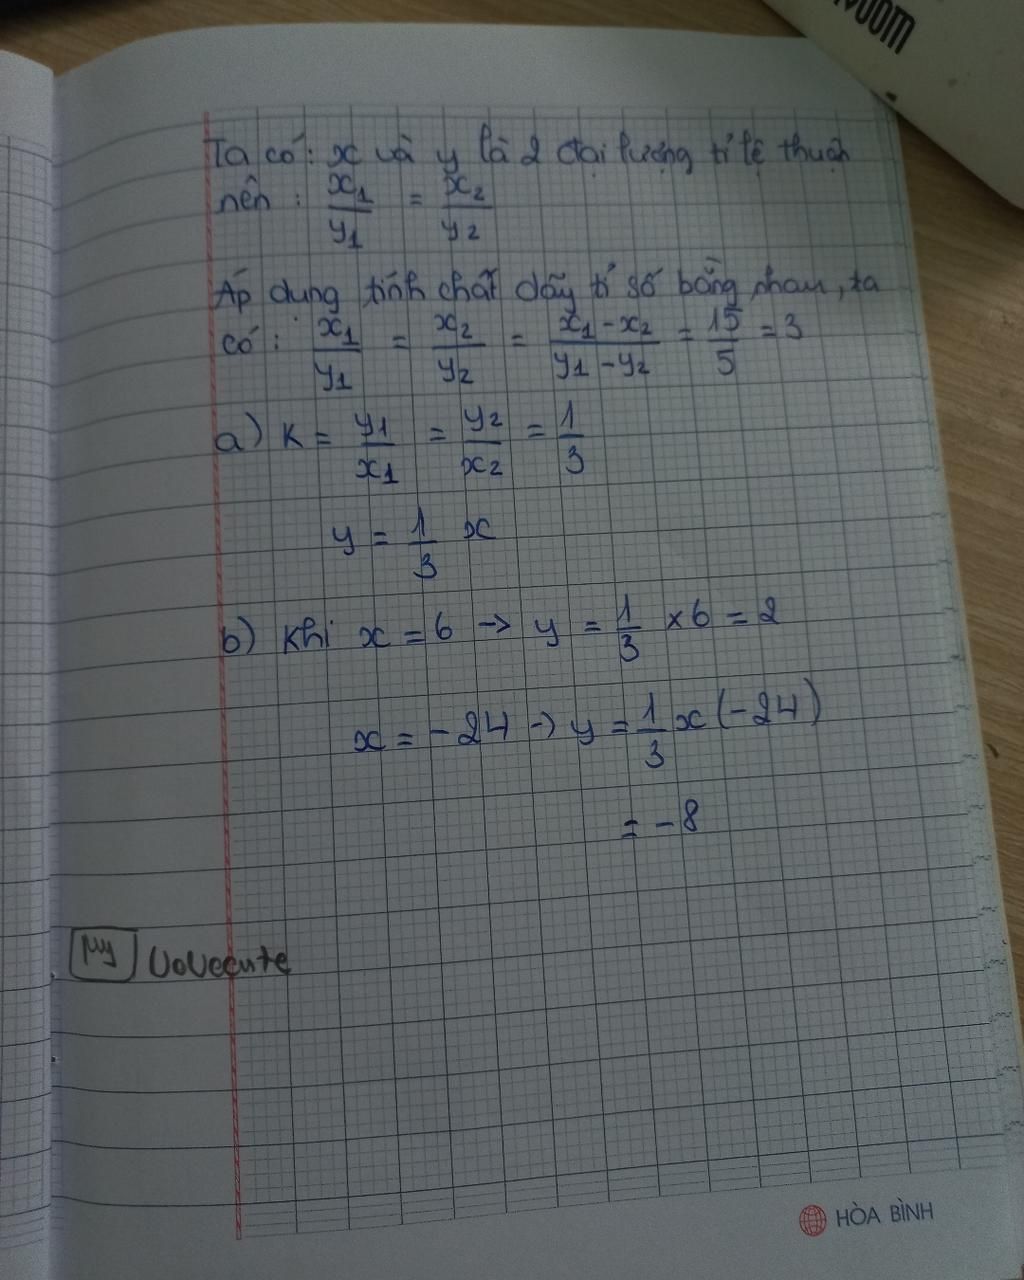 VUOM
Ta có: x và y là 2 đại lượng tỉ lệ thuận
nên : x1/y1 = x2/y2
Áp dụng tính chất dãy tỉ số bằng nhau, ta
có : x1/y1 = x2/y2 = x1-x2/y1-y2 = 15/5 = 3
a) K = y1/x1 = y2/x2 = 1/3
y = 1/3 x
b) Khi x = 6 → y = 1/3 × 6 = 2
x = -24 → y = 1/3 x (-24)
= -8
My UoUecute
HÒA BÌNH